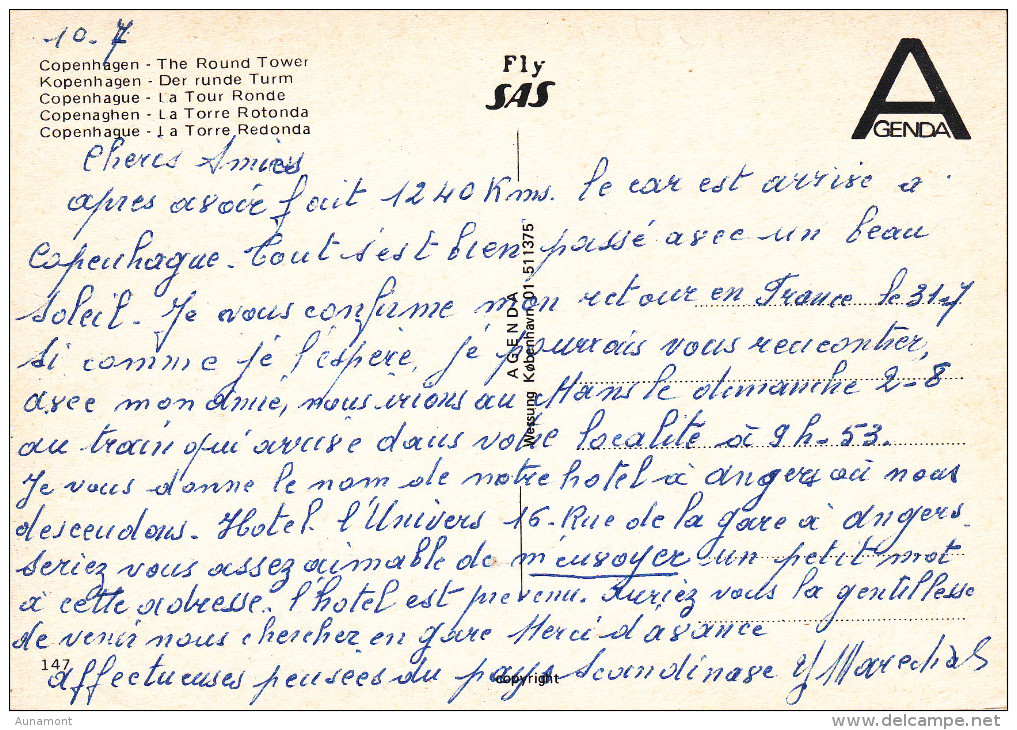 10-7
Copenhagen - The Round Tower
Kopenhagen - Der runde Turm
Copenhague - La Tour Ronde
Copenaghen - La Torre Rotonda
Copenhague - La Torre Redonda
Fly
SAS
A
GENDA
Cheres Amies
apres avoir fait 1240 Kms. le car est arrivé à
Copenhague. Tout s'est bien passé avec un beau
soleil. Je vous confirme mon retour en France le 31-7
si comme je l'espère, je pourrais vous rencontrer,
avec mon amie, nous irions au Mans le dimanche 2-8
au train qui arrive dans votre localité à 9h-53.
Je vous donne le nom de notre hotel à Angers où nous
descendons. Hotel l'Univers 16-Rue de la gare à Angers.
seriez vous assez aimable de m'envoyer un petit mot
à cette adresse. l'hotel est prevenu. Auriez vous la gentillesse
de venir nous chercher en gare Merci d'avance
affectueuses pensées du pays Scandinave Y Marechal
AGENDA
Wessung København 01-511375
147
copyright
Aunamont
delcampe.net